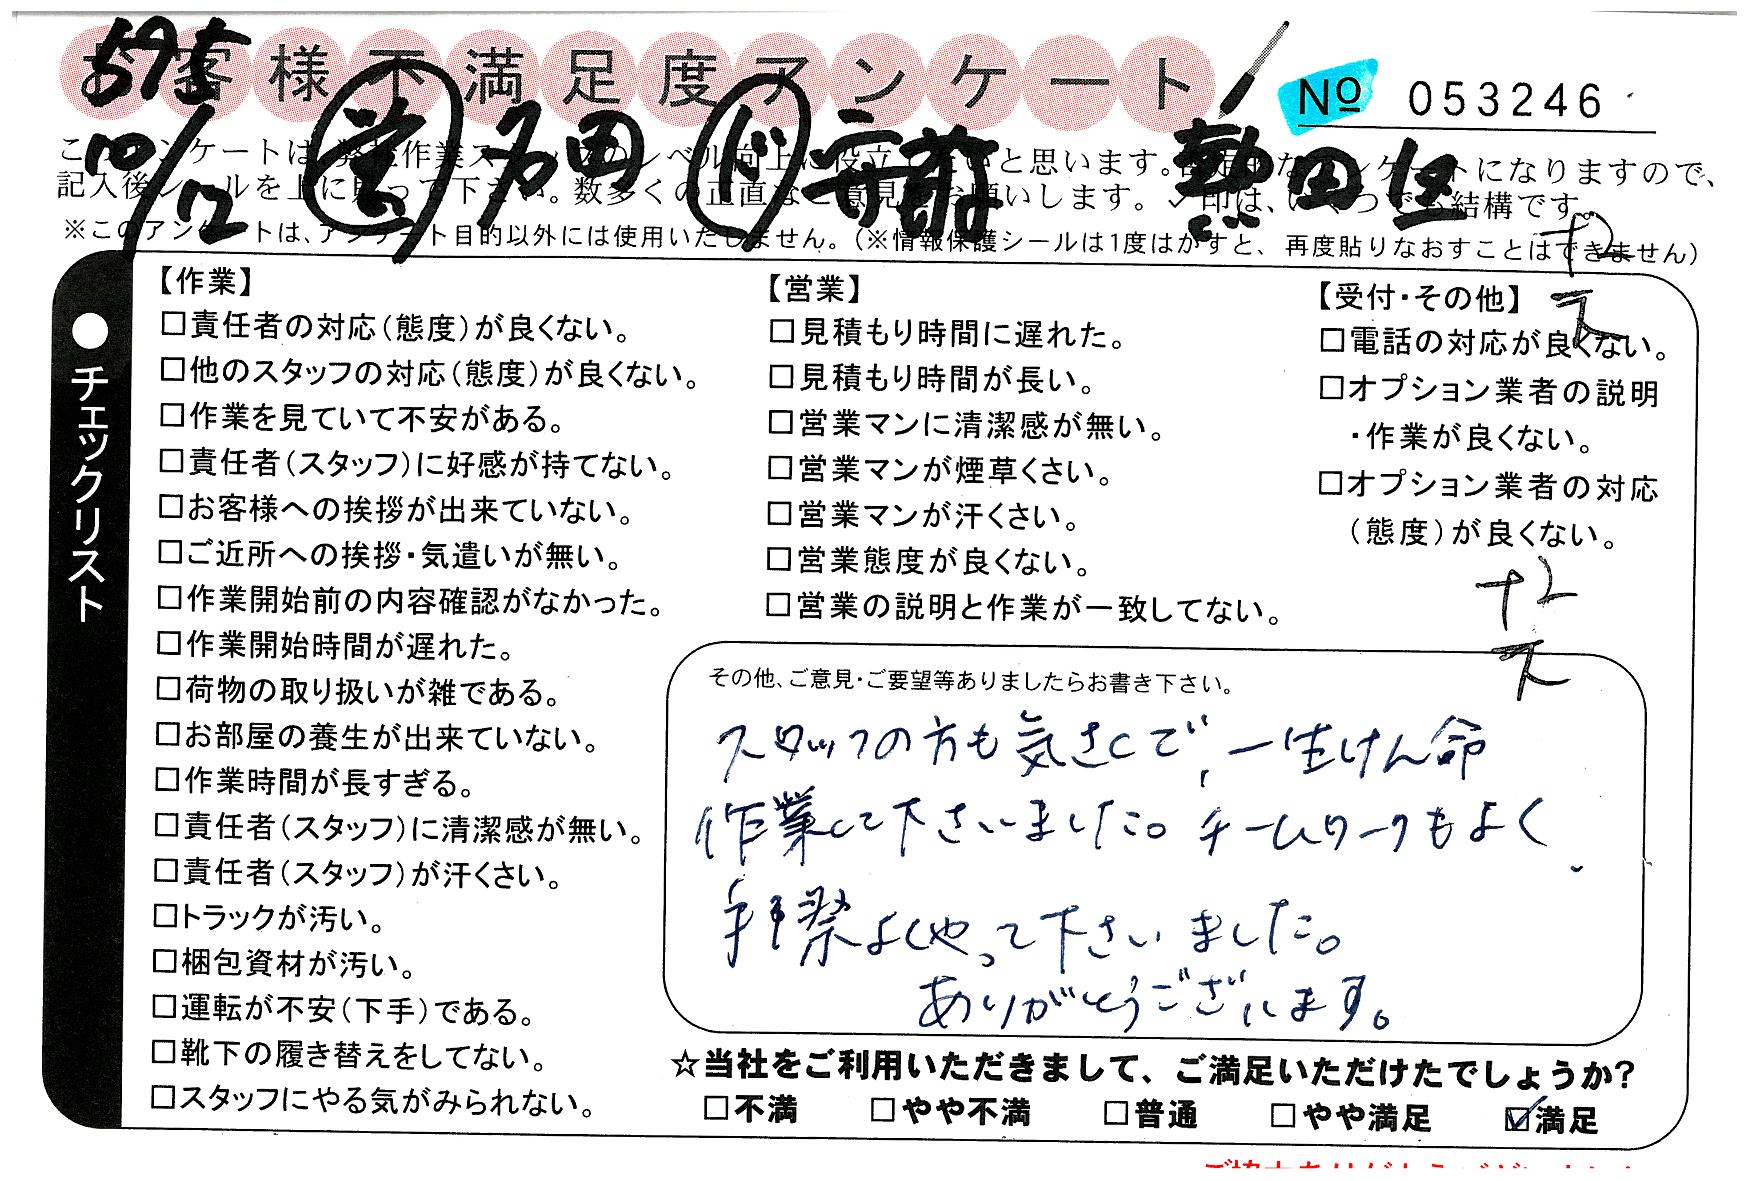 お客様不満足度アンケート
№ 053246
595
10/12 営 多田 ド 安藤 熱田区
このアンケートは、発検作業スタッフのレベル向上に役立てたいと思います。否定的なアンケートになりますので、
記入後シールを上に貼って下さい。数多くの正直なご意見をお願いします。✓印は、いくつでも結構です。
※このアンケートは、アンケート目的以外には使用いたしません。(※情報保護シールは1度はがすと、再度貼りなおすことはできません)
●チェックリスト
【作業】
□責任者の対応(態度)が良くない。
□他のスタッフの対応(態度)が良くない。
□作業を見ていて不安がある。
□責任者(スタッフ)に好感が持てない。
□お客様への挨拶が出来ていない。
□ご近所への挨拶・気遣いが無い。
□作業開始前の内容確認がなかった。
□作業開始時間が遅れた。
□荷物の取り扱いが雑である。
□お部屋の養生が出来ていない。
□作業時間が長すぎる。
□責任者(スタッフ)に清潔感が無い。
□責任者(スタッフ)が汗くさい。
□トラックが汚い。
□梱包資材が汚い。
□運転が不安(下手)である。
□靴下の履き替えをしてない。
□スタッフにやる気がみられない。
【営業】
□見積もり時間に遅れた。
□見積もり時間が長い。
□営業マンに清潔感が無い。
□営業マンが煙草くさい。
□営業マンが汗くさい。
□営業態度が良くない。
□営業の説明と作業が一致してない。
【受付・その他】
□電話の対応が良くない。
□オプション業者の説明
・作業が良くない。
□オプション業者の対応
(態度)が良くない。
その他、ご意見・ご要望等ありましたらお書き下さい。
スタッフの方も気さくで、一生けん命
作業して下さいました。チームワークもよく、
手際よくやって下さいました。
ありがとうございます。
☆当社をご利用いただきまして、ご満足いただけたでしょうか?
□不満 □やや不満 □普通 □やや満足 ☑満足